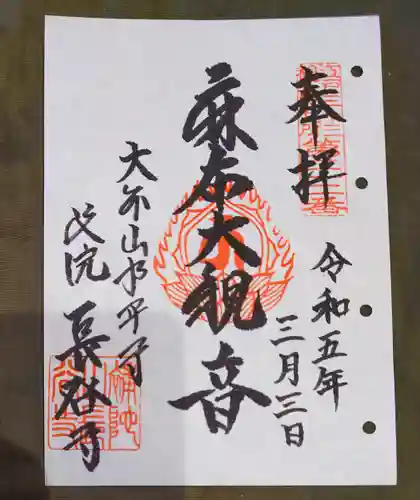 奉拝
令和五年
三月三日
麻布大観音
大本山永平寺
別院 長谷寺